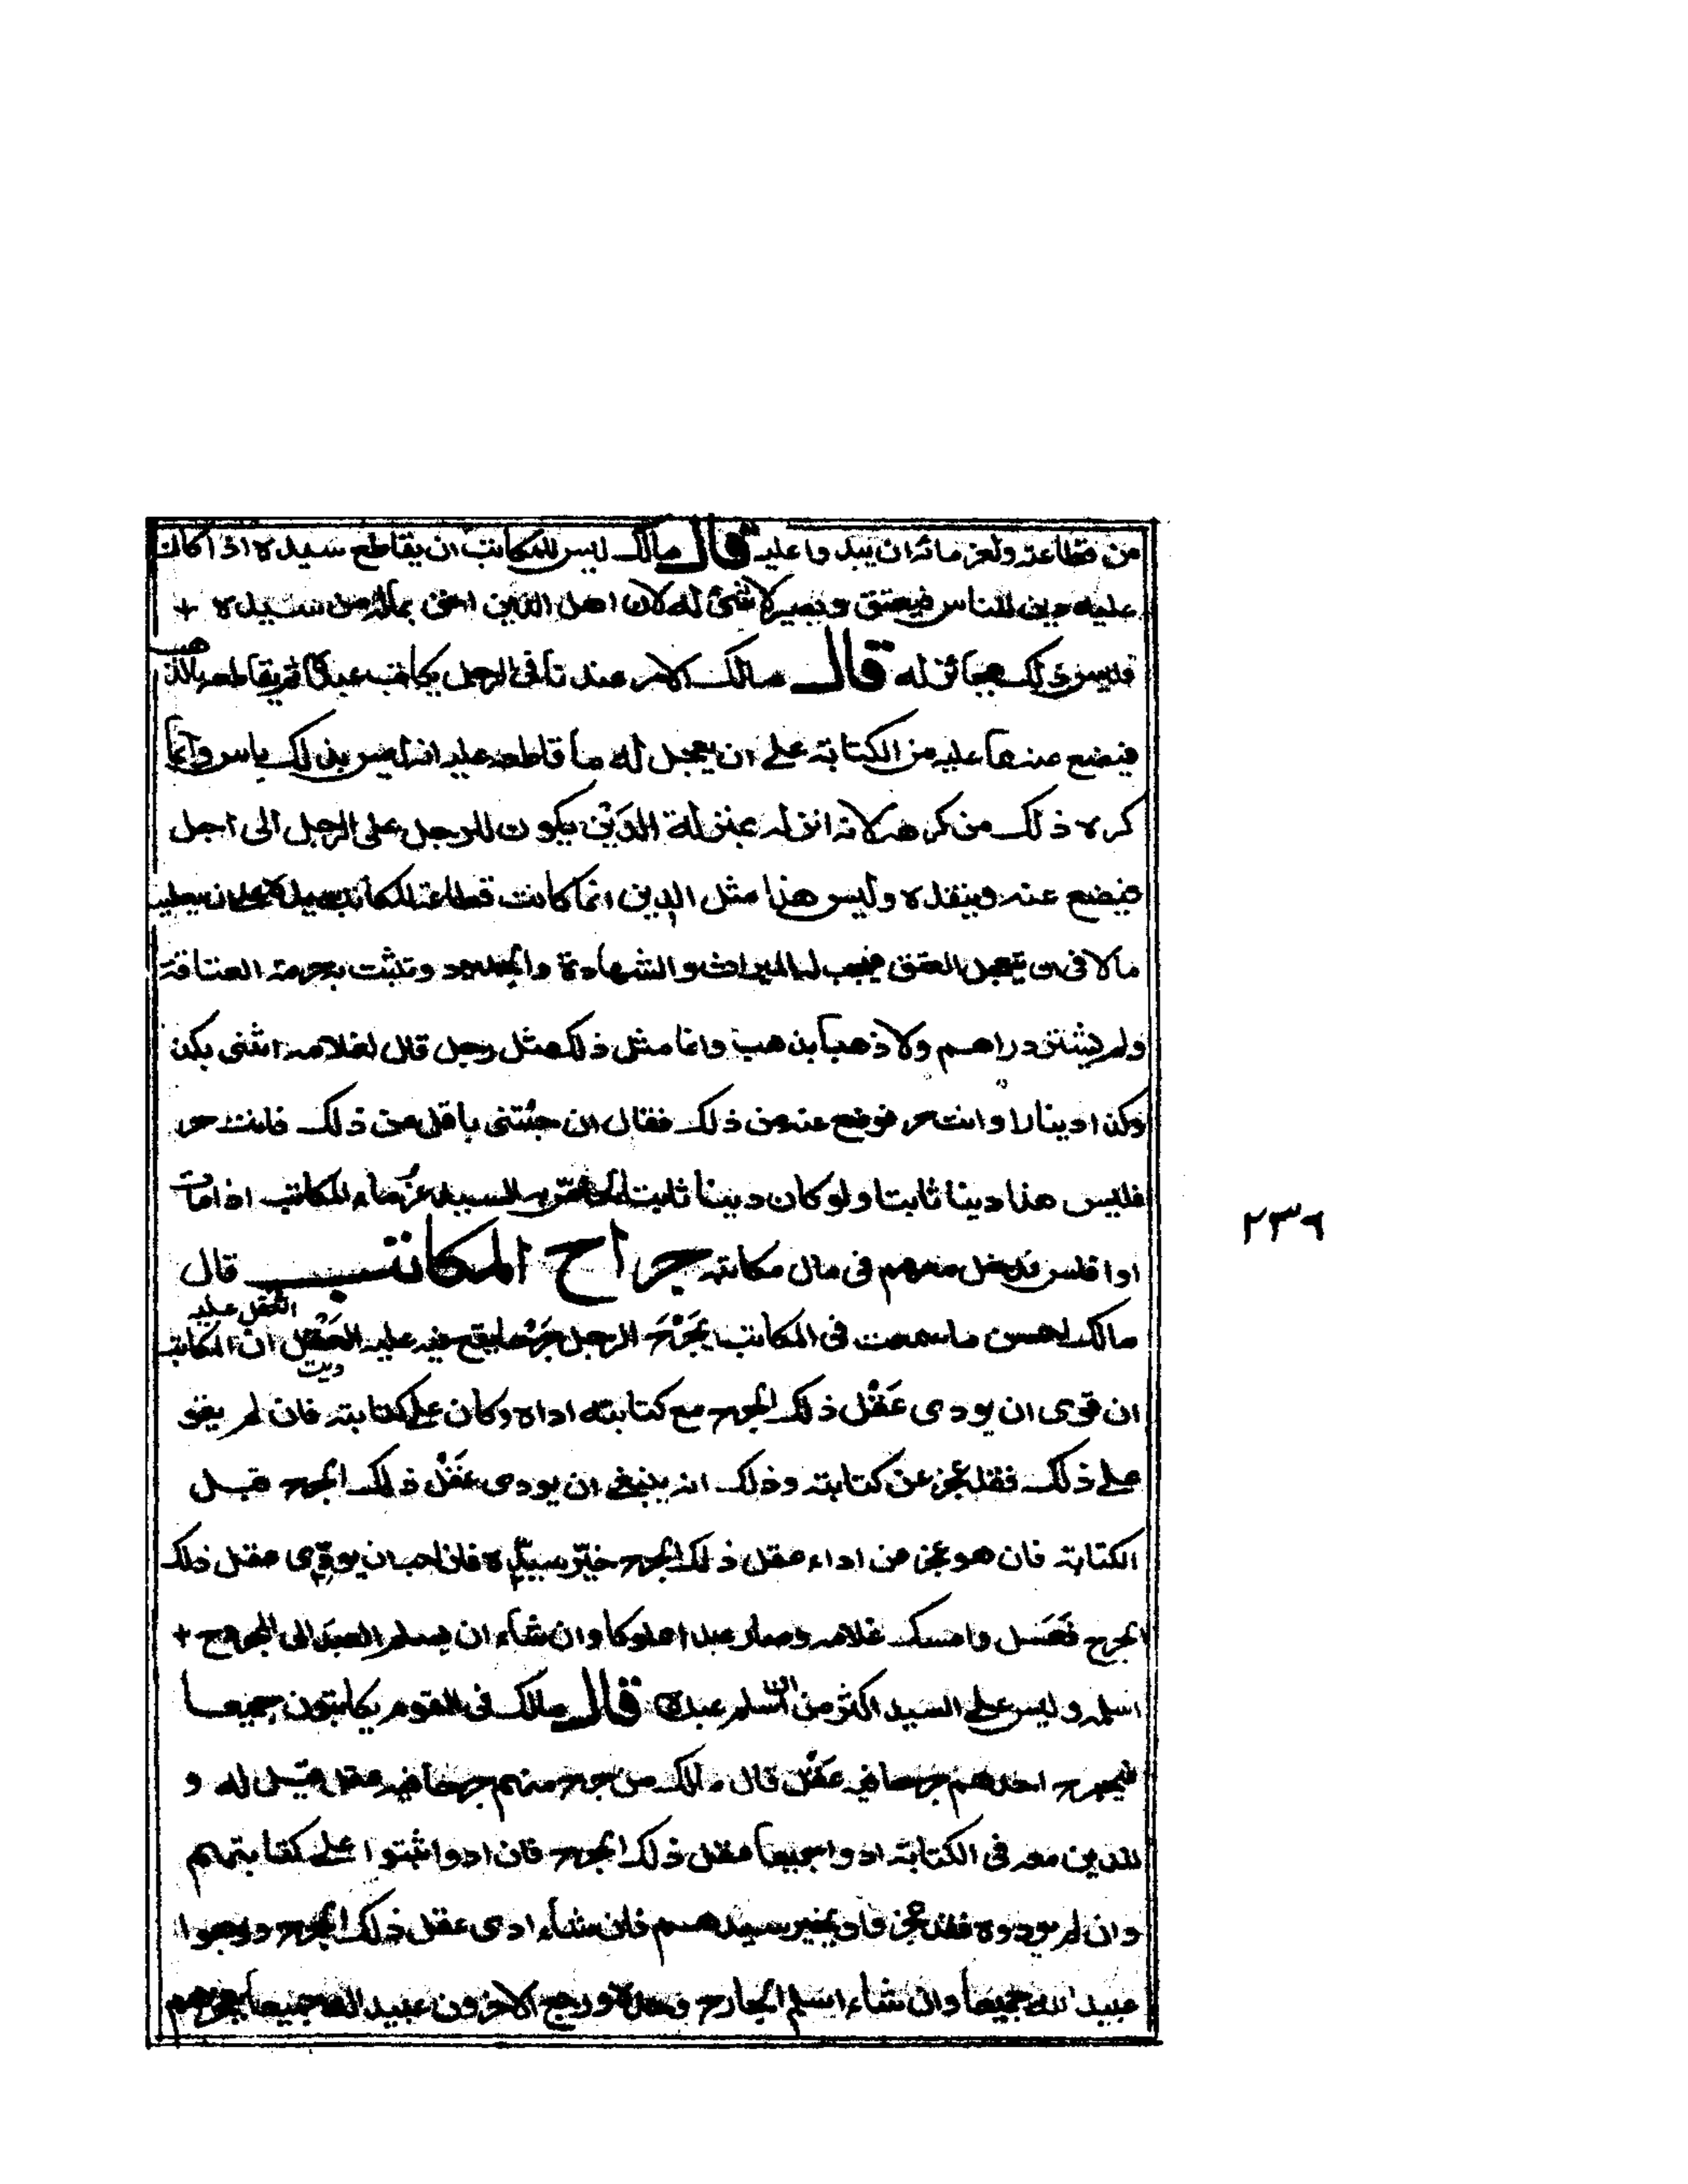 من قطاعته ولغرمائه ان يبدوا عليه قال مالك ليس للمكاتب ان يقاطع سيده اذا كان
عليه دين للناس فيعتق ويصير لا شئ له لان اهل الدين احق بماله من سيده +
فليس ذلك بجائز له قال مالك الامر عندنا فى الرجل يكاتب عبده ثم يقاطعه بالذهب
فيضع عنه مما عليه من الكتابة على ان يعجل له ما قاطعه عليه انه ليس بذلك باس وانما
كره ذلك من كرهه لانه انزله بمنزلة الدَيْن يكون للرجل على الرجل الى اجل
فيضع عنه وينقده وليس هذا مثل الدين انما كانت قطاعة المكاتب سيده على ان يعطيه
مالا فى ان يتعجل العتق فيجب له الميراث والشهادة والحدود وتثبت به حرمة العتاقة
ولم يشتر دراهم ولا ذهبا بذهب وانما مثل ذلك مثل رجل قال لغلامه ائتنى بكذا
وكذا دينارا وانت حر فوضع عنه من ذلك فقال ان جئتنى باقل من ذلك فانت حر
فليس هذا دينا ثابتا ولو كان دينا ثابتا لحاصّ به السيد غرماء المكاتب اذا مات
او افلس فدخل معهم فى مال مكاتبه جراح المكاتب قال
مالك احسن ما سمعت فى المكاتب يَجْرَحُ الرجل جَرْحا يقع فيه عليه العَقْل ان المكاتب
العقل عليه
ديت
ان قوى ان يودى عَقْل ذلك الجرح مع كتابته اداه وكان على كتابته فان لم يقو
على ذلك فقد عجز عن كتابته وذلك انه ينبغى ان يودى عَقْل ذلك الجرح قبل
الكتابة فان هو عجز عن اداء عقل ذلك الجرح خيّر سيّده فان احب ان يودّى عقل ذلك
الجرح فَعَل وامسك غلامه وصار عبدا مملوكا وان شاء ان يسلم العبد الى المجروح +
اسلمه وليس على السيد اكثر من ان يسلم عبده قال مالك فى القوم يكاتبون جميعا
فيجرح احدهم جرحا فيه عَقْل قال مالك من جرح منهم جرحا فيه عقل قيل له و
للذين معه فى الكتابة ادوا جميعا عقل ذلك الجرح فان ادوا ثبتوا على كتابتهم
وان لم يودوه فقد عجزوا ويخير سيدهم فان شاء ادى عقل ذلك الجرح ورجعوا
عبيدا له جميعا وان شاء اسلم الجارح وحده ورجع الاخرون عبيدا له جميعا بعجزهم
٢٣٩